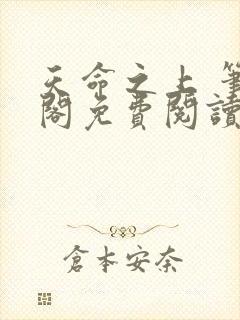 天命之上 筆
閣免費閱讀
倉本安奈